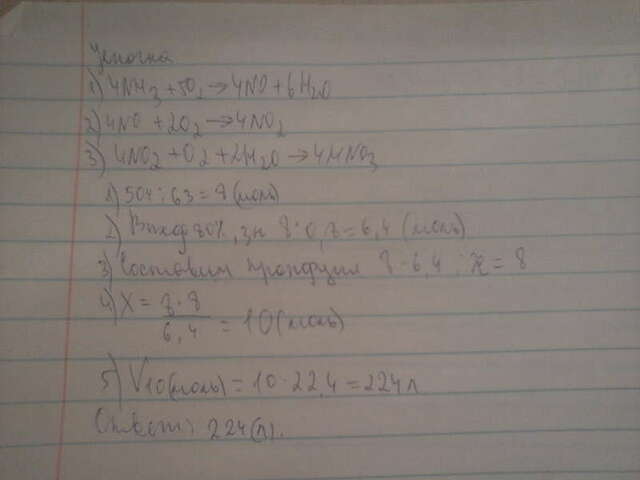 Цепочка
1) 4NH3 + 5O2 → 4NO + 6H2O
2) 4NO + 2O2 → 4NO2
3) 4NO2 + O2 + 2H2O → 4HNO3
1) 504 : 63 = 8 (моль)
2) Выход 80%, зн 8 · 0,8 = 6,4 (моль)
3) Составим пропорцию 8 - 6,4 : x = 8
4) X = 8 · 8
6,4 = 10 (моль)
5) V10(моль) = 10 · 22,4 = 224 л
Ответ: 224 (л).